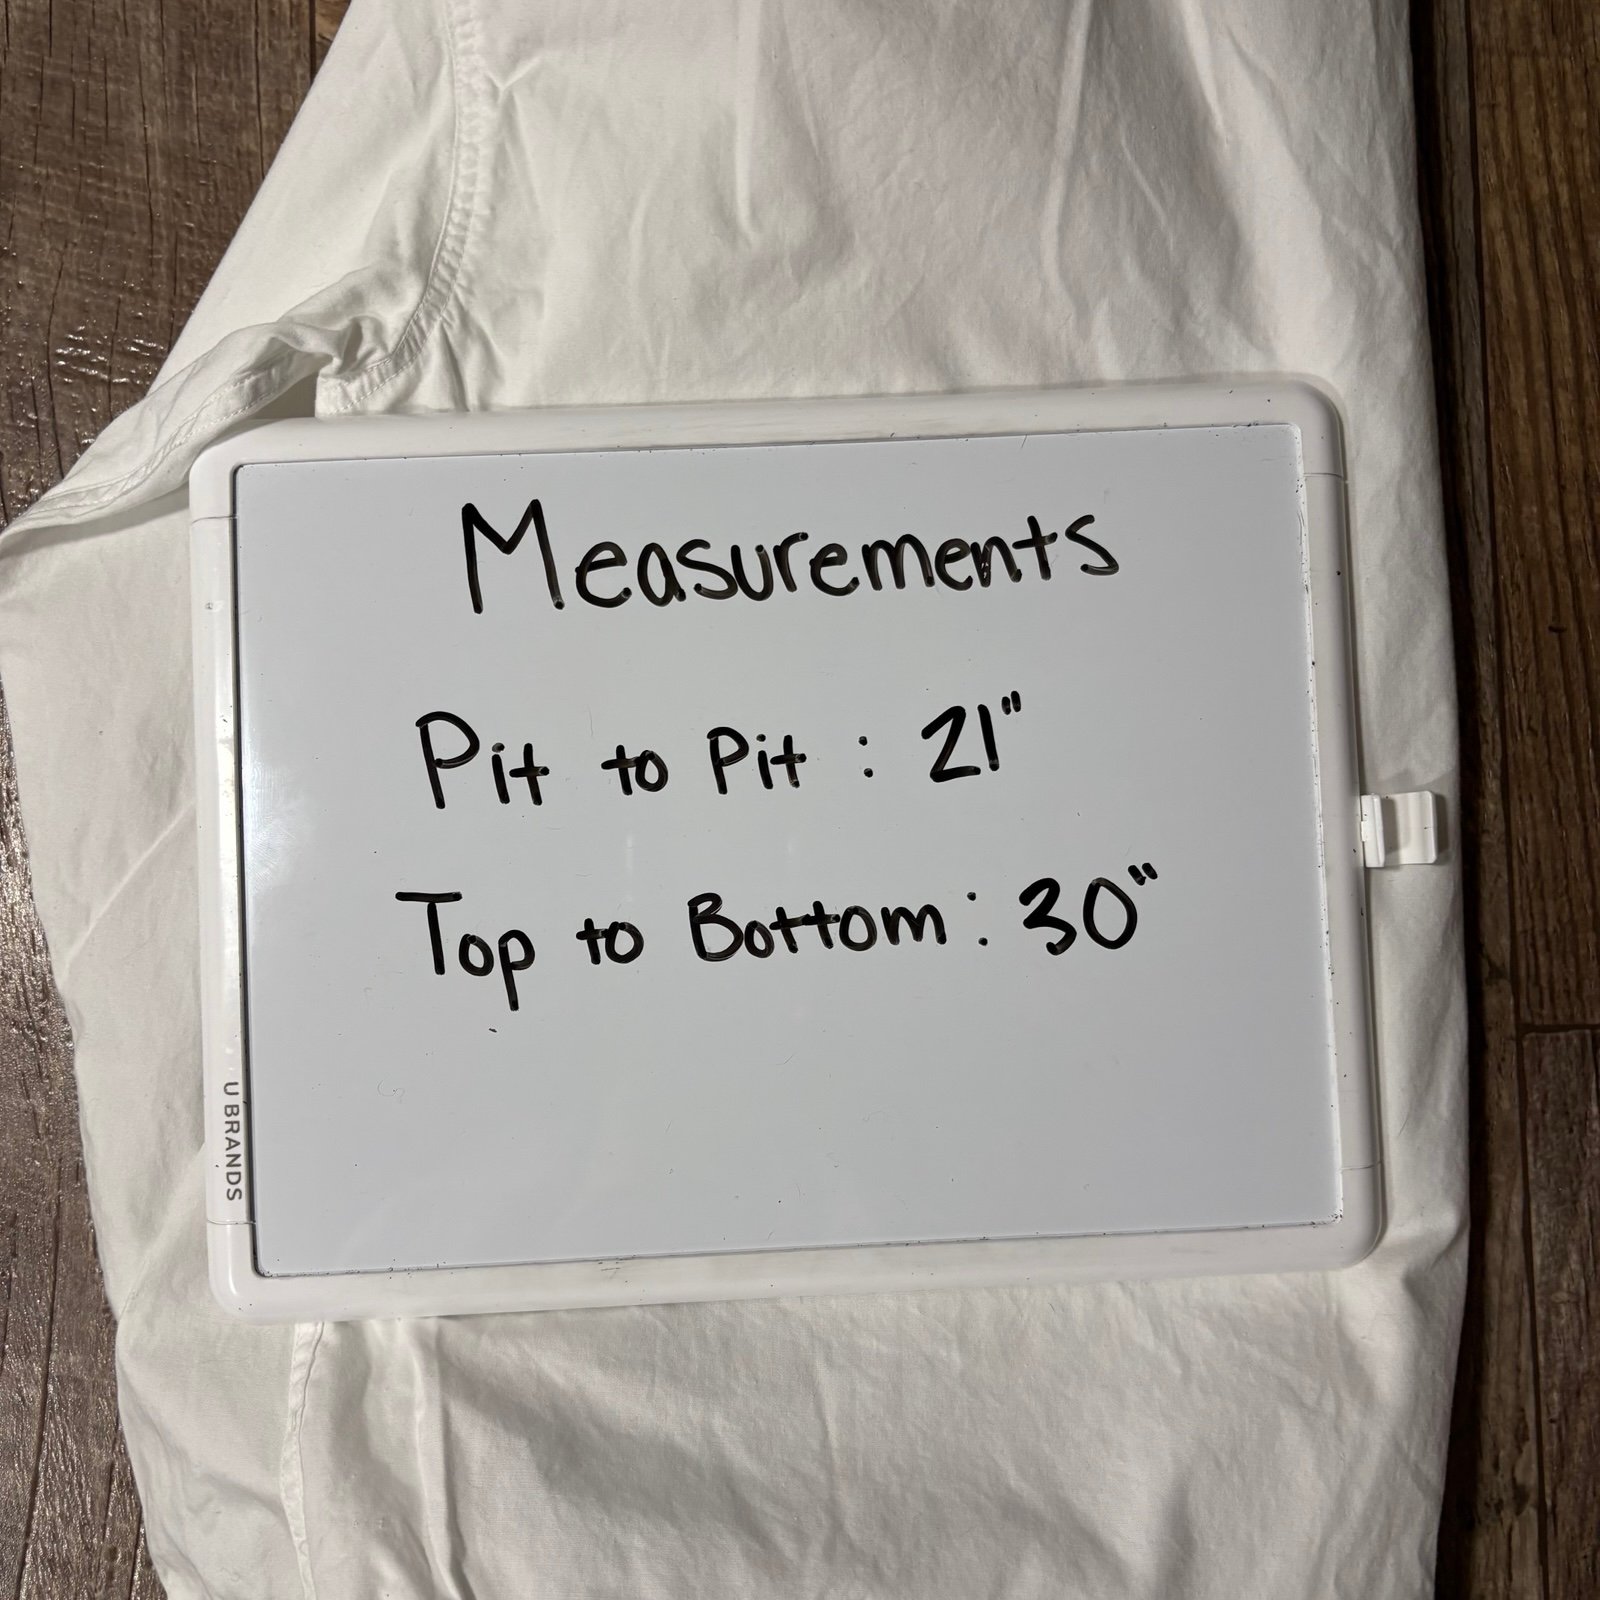 Measurements
Pit to Pit : 21"
Top to Bottom : 30"
U BRANDS